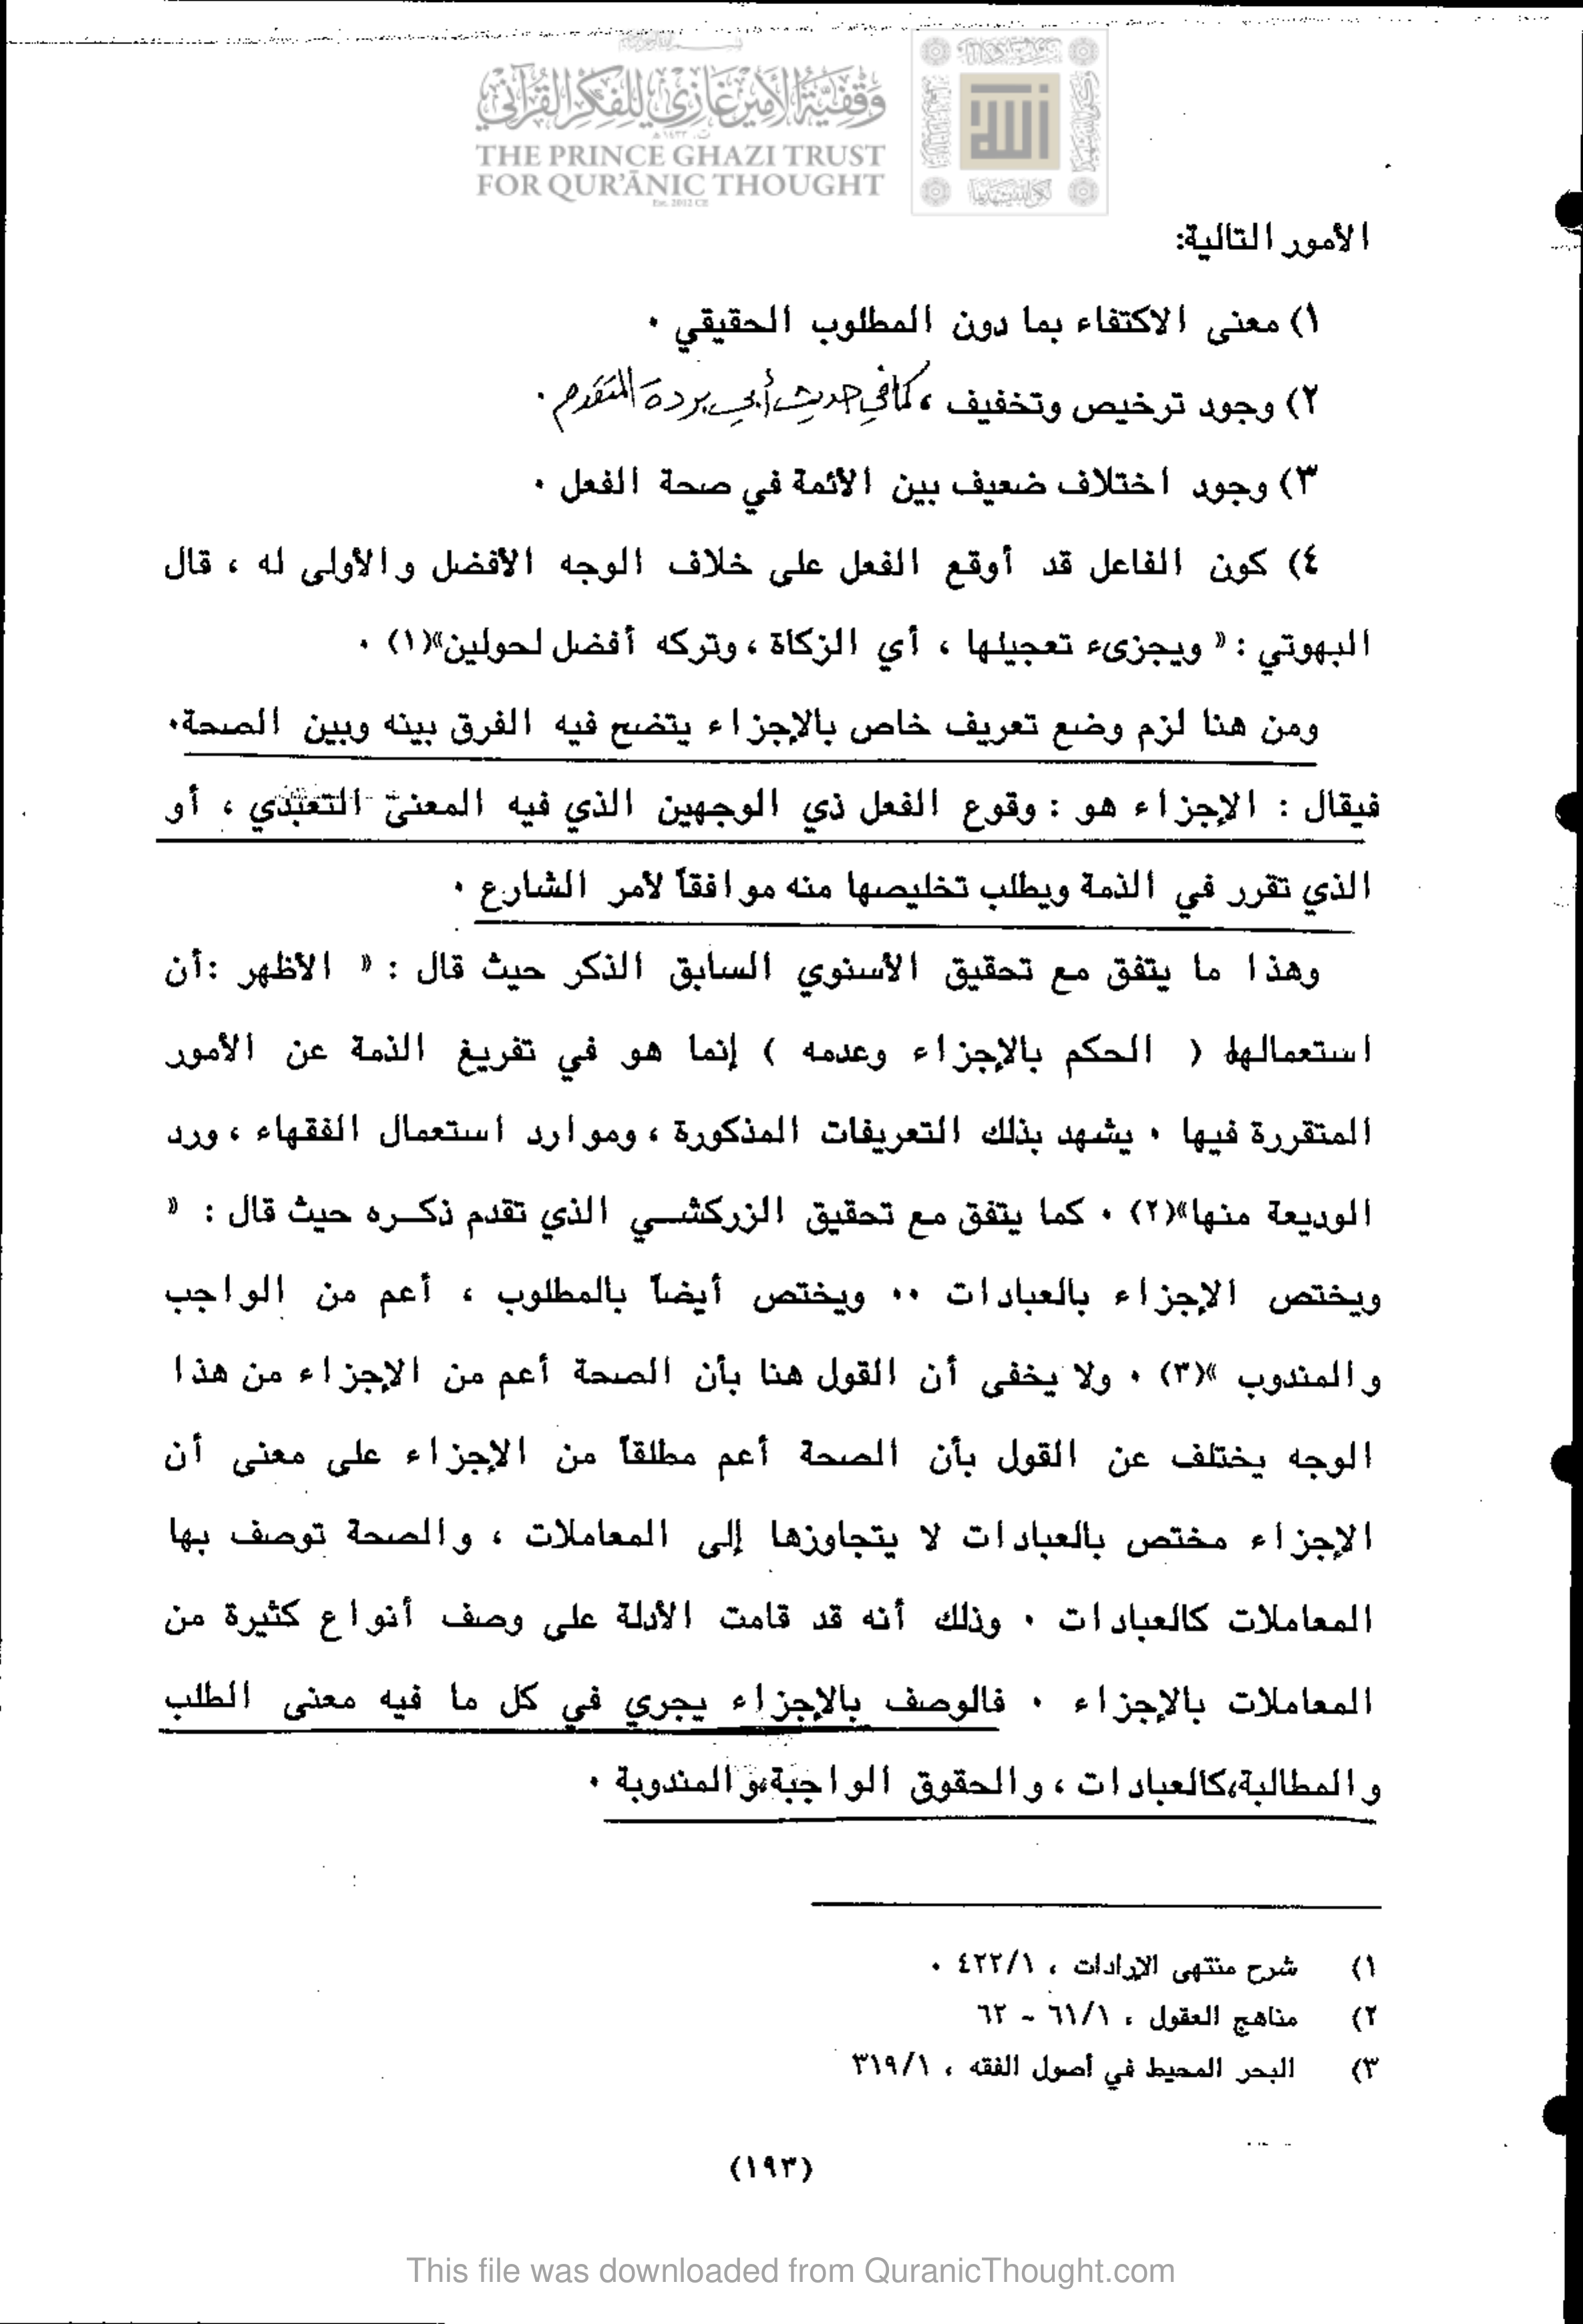 وقفية الأمير غازي للفكر القرآني
THE PRINCE GHAZI TRUST
FOR QUR'ĀNIC THOUGHT
Est. 2012 CE
الأمور التالية:
١) معنى الاكتفاء بما دون المطلوب الحقيقي ٠
٢) وجود ترخيص وتخفيف ، كما في حديث أبي بردة المتقدم ٠
٣) وجود اختلاف ضعيف بين الأئمة في صحة الفعل ٠
٤) كون الفاعل قد أوقع الفعل على خلاف الوجه الأفضل والأولى له ، قال
البهوتي : « ويجزىء تعجيلها ، أي الزكاة ، وتركه أفضل لحولين»(١) ٠
ومن هنا لزم وضع تعريف خاص بالإجزاء يتضح فيه الفرق بينه وبين الصحة٠
فيقال : الإجزاء هو : وقوع الفعل ذي الوجهين الذي فيه المعنى التعبّدي ، أو
الذي تقرر في الذمة ويطلب تخليصها منه موافقاً لأمر الشارع ٠
وهذا ما يتفق مع تحقيق الأسنوي السابق الذكر حيث قال : « الأظهر :أن
استعمالها ( الحكم بالإجزاء وعدمه ) إنما هو في تفريغ الذمة عن الأمور
المتقررة فيها ٠ يشهد بذلك التعريفات المذكورة ، وموارد استعمال الفقهاء ، ورد
الوديعة منها»(٢) ٠ كما يتفق مع تحقيق الزركشــي الذي تقدم ذكــره حيث قال : «
ويختص الإجزاء بالعبادات ٠٠ ويختص أيضاً بالمطلوب ، أعم من الواجب
والمندوب »(٣) ٠ ولا يخفى أن القول هنا بأن الصحة أعم من الإجزاء من هذا
الوجه يختلف عن القول بأن الصحة أعم مطلقاً من الإجزاء على معنى أن
الإجزاء مختص بالعبادات لا يتجاوزها إلى المعاملات ، والصحة توصف بها
المعاملات كالعبادات ٠ وذلك أنه قد قامت الأدلة على وصف أنواع كثيرة من
المعاملات بالإجزاء ٠ فالوصف بالإجزاء يجري في كل ما فيه معنى الطلب
والمطالبة،كالعبادات ، والحقوق الواجبة،والمندوبة ٠
١) شرح منتهى الإرادات ، ٤٢٢/١ ٠
٢) مناهج العقول ، ٦١/١ - ٦٢
٣) البحر المحيط في أصول الفقه ، ٣١٩/١
(١٩٣)
This file was downloaded from QuranicThought.com